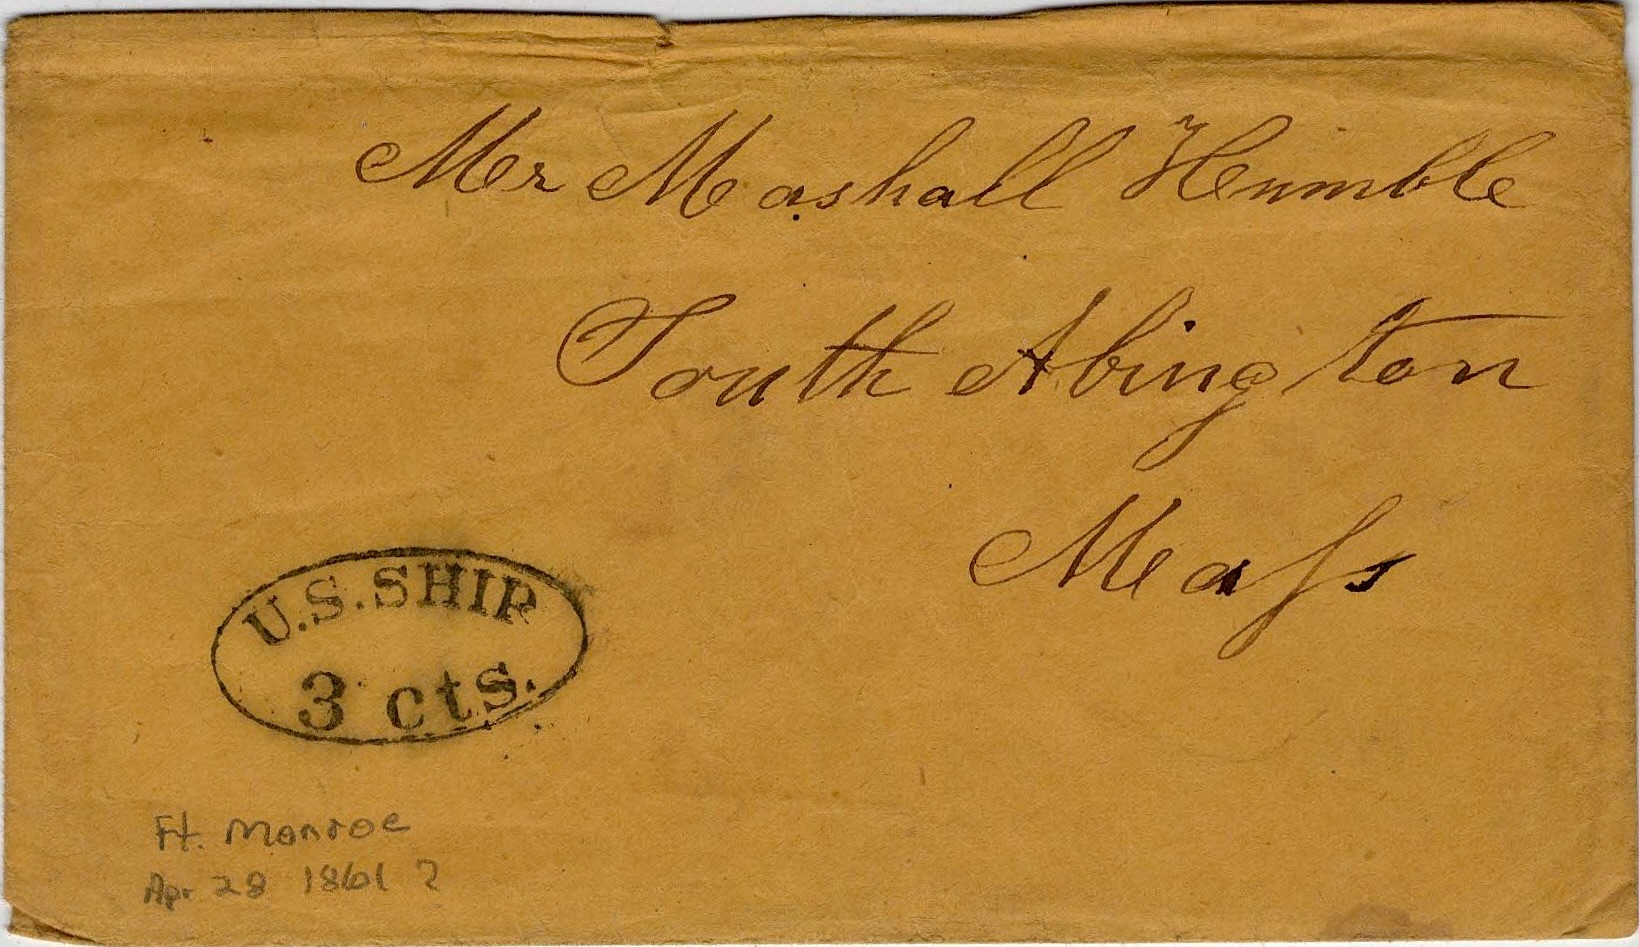 Mr Mashall Humble
South Abington
Mass
U.S. SHIP
3 cts.
Ft. Monroe
Apr 28 1861 ?